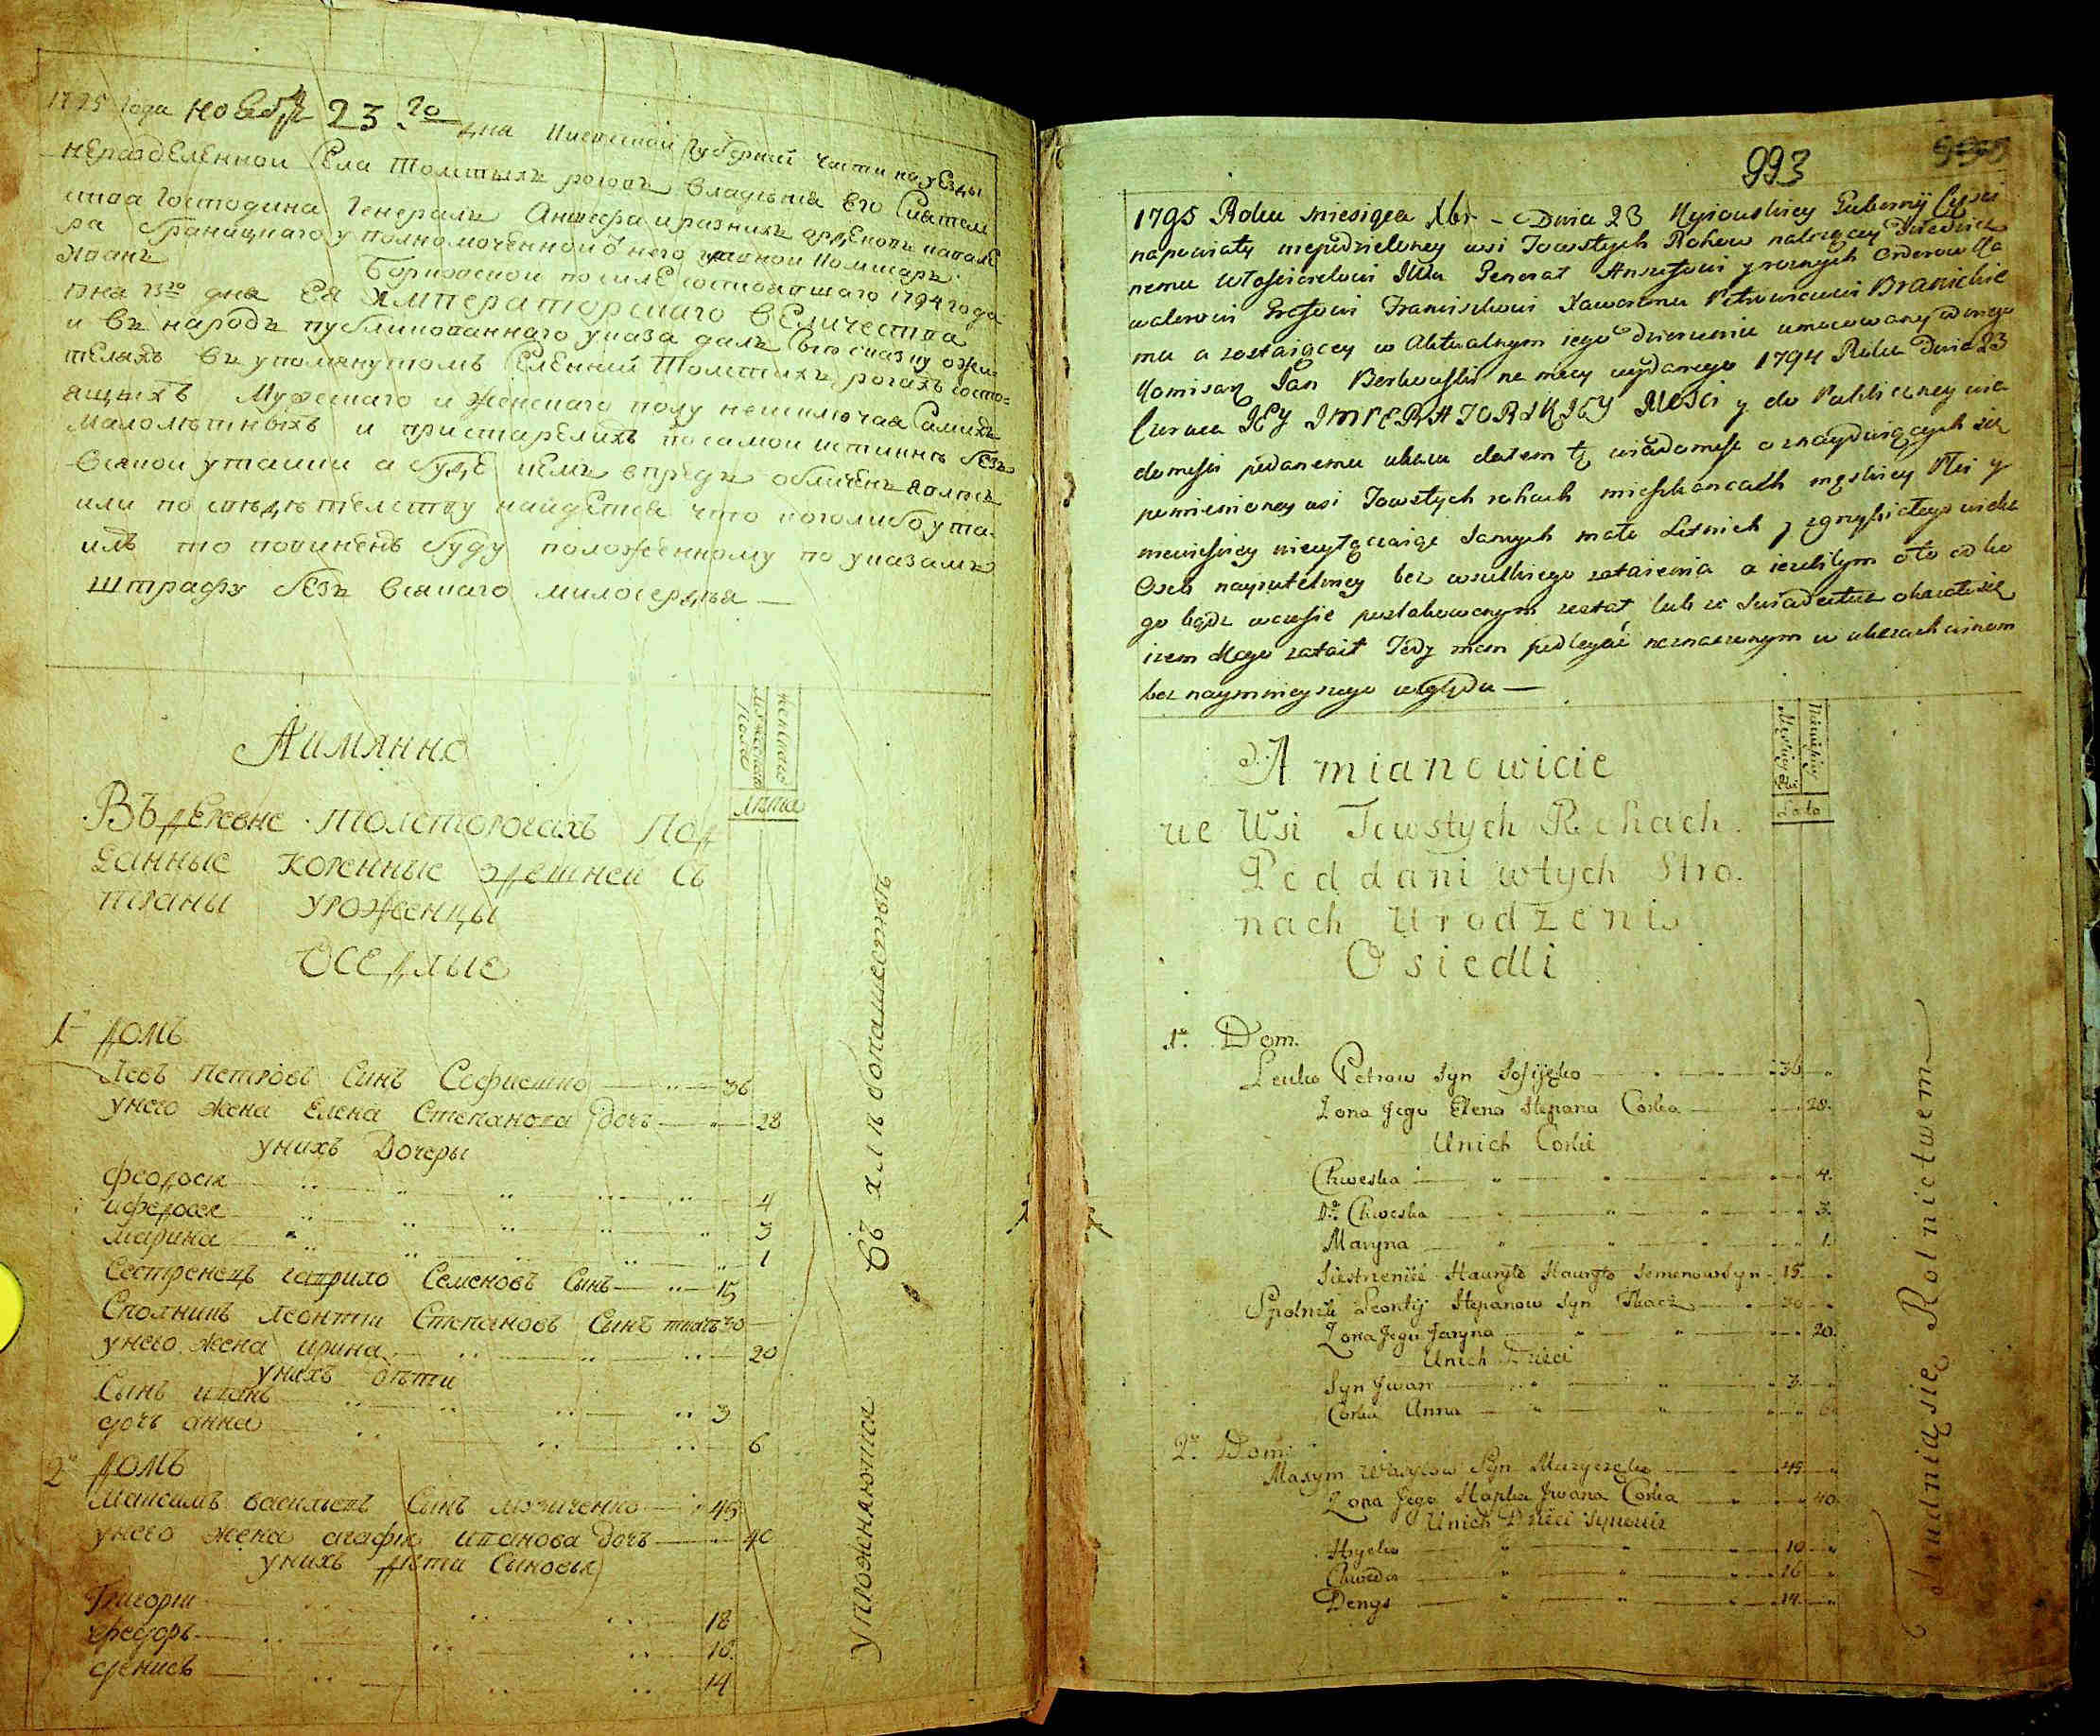 1795 года ноября 23 го дня Киевской Губернии части на уезды
неразделенной Села Толстыхъ роговъ владения его Сиятел
ства Господина Генералъ Аншефа и разныхъ орденовъ кавале
ра Браницкаго уполномоченной от него главной комисаръ
Иванъ Борковской по силе состоявшаго 1794 года
23го дня Ея Императорскаго Величества
и въ народъ публикованнаго указа далъ сию сказку о жи
теляхъ въ упомянутомъ селении Толстыхъ рогахъ состо=
ящихъ Мужескаго и Женскаго полу неисключая самыхъ
малолетныхъ и пристарелыхъ по самой истинне безъ
всякой утайки а буде кемъ впредь обличенъ
или по свидетелству найдется что кого либо ута-
илъ то повиненъ буду положенному по указамъ
штрафу безъ всякаго милосердия
Аимянно
мужескаго
женскаго
пола
лета
Въ деревне Толсторогахъ Под
данные коренные здешней с
траны уроженцы
Оседлые
1 домъ
Левъ Петровъ Сынъ Софиенко 36
у него жена Елена Степанова дочь 28
у нихъ Дочеры
Феодосия 4
и Федосия 3
Марина 1
Сестренецъ гаврило Семеновъ Сынъ 15
Сполникъ Леонтии Степановъ Сынъ ткачъ 30
у него жена ирина 20
у нихъ дети
Сынъ иванъ 3
дочь анна 6
2 домъ
Максимъ васильевъ Сынъ музиченко 45
у него жена агафия иванова дочь 40
у нихъ дети Сыновья
Григорий 18
федоръ 16
денисъ 14
Упражняются въ хлебопашестве
993
1795 Roku miesiąca Xbr Dnia 23 Kyiowskiey Gubernij Części
na powiaty niepodzieloney wsi Towstych Rohow należącey
nemu Włościcielowi JWu General Anszefowi y roznych Orderow Ka
walerowi Grafowi Franciszkowi Xaweremu Branickie
mu a zostaiącey w aktualnym iego dzierzeniu umocowany od niego
Komisarz Pan Borkowski na mocy wydanego 1794 Roku Dnia 23
Czerwca JEY IMPERATORSKIEY MOŚCi y do Publiczney wia
domości podanemu ukazu dałem tę wiadomość o znayduiących się
pomienioney wsi Towstych rohach mieszkancach męskiey Płci y
niewieściey niewyłączaiąc samych mało Letnich y zgrzybiałego wieku
Osob nayrzetelniey bez wszelkiego zatajenia a ieżelibym oto od ko
go bądz w czasie poszlakowanym został lub ze świadectwa okazało się
iżem kogo zataił Tedy mam podlegać naznaczonym w ukazach winom
bez naymnieyszego względu
A mianowicie
Męskiey
Niewieściey
Lata
we Wsi Towstych Rohach
Poddani w tych Stro.
nach Urodzeni
Osiedli
1o Dom.
Lewko Petrow Syn Sofijęko 36
Zona Jego Elena Stepana Corka 28.
U nich Corki
Chweska 4.
2a Chweska 3.
Maryna 1.
Siestrzeniec Hawryło Hawryło Semenow Syn 15
Spolnik Leontij Stepanow Syn Tkacz 30
Zona Jego Jaryna 20.
U nich Dzieci
Syn Jwan 3
Corka Anna 6
2o Dom.
Maxym Wasylow Syn Muzyczęko 45
Zona Jego Hapka Jwana Corka 40.
U nich Dzieci Synowie
Hryćko 18
Chwedor 16
Denys 14
trudnią się Rolnictwem